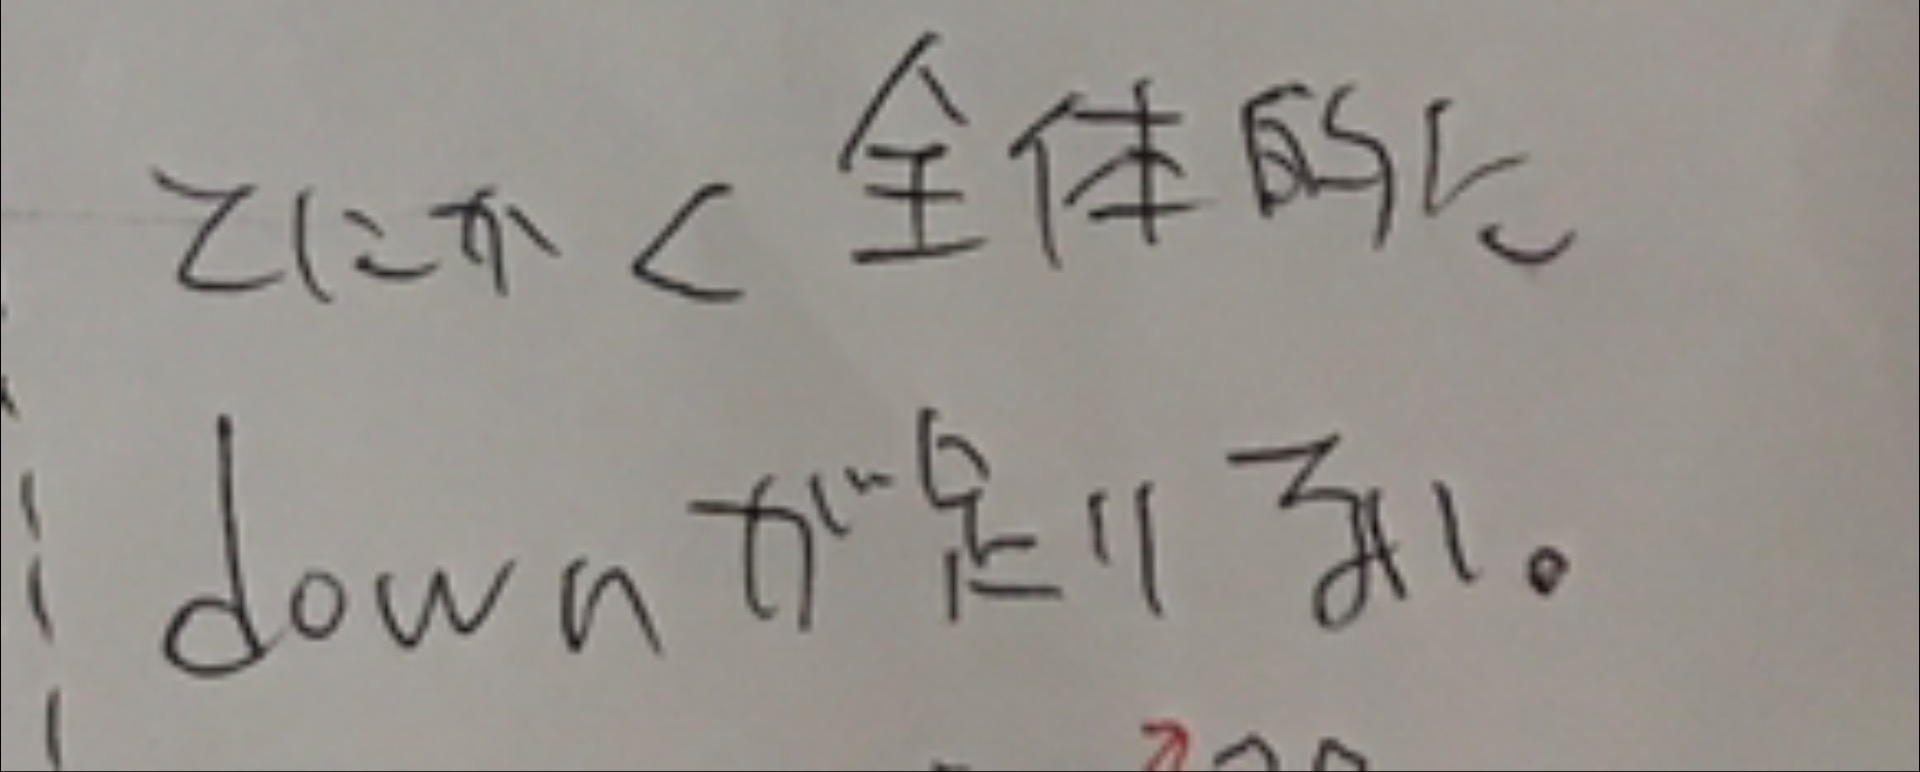 とにかく全体的に
downが足りみい。